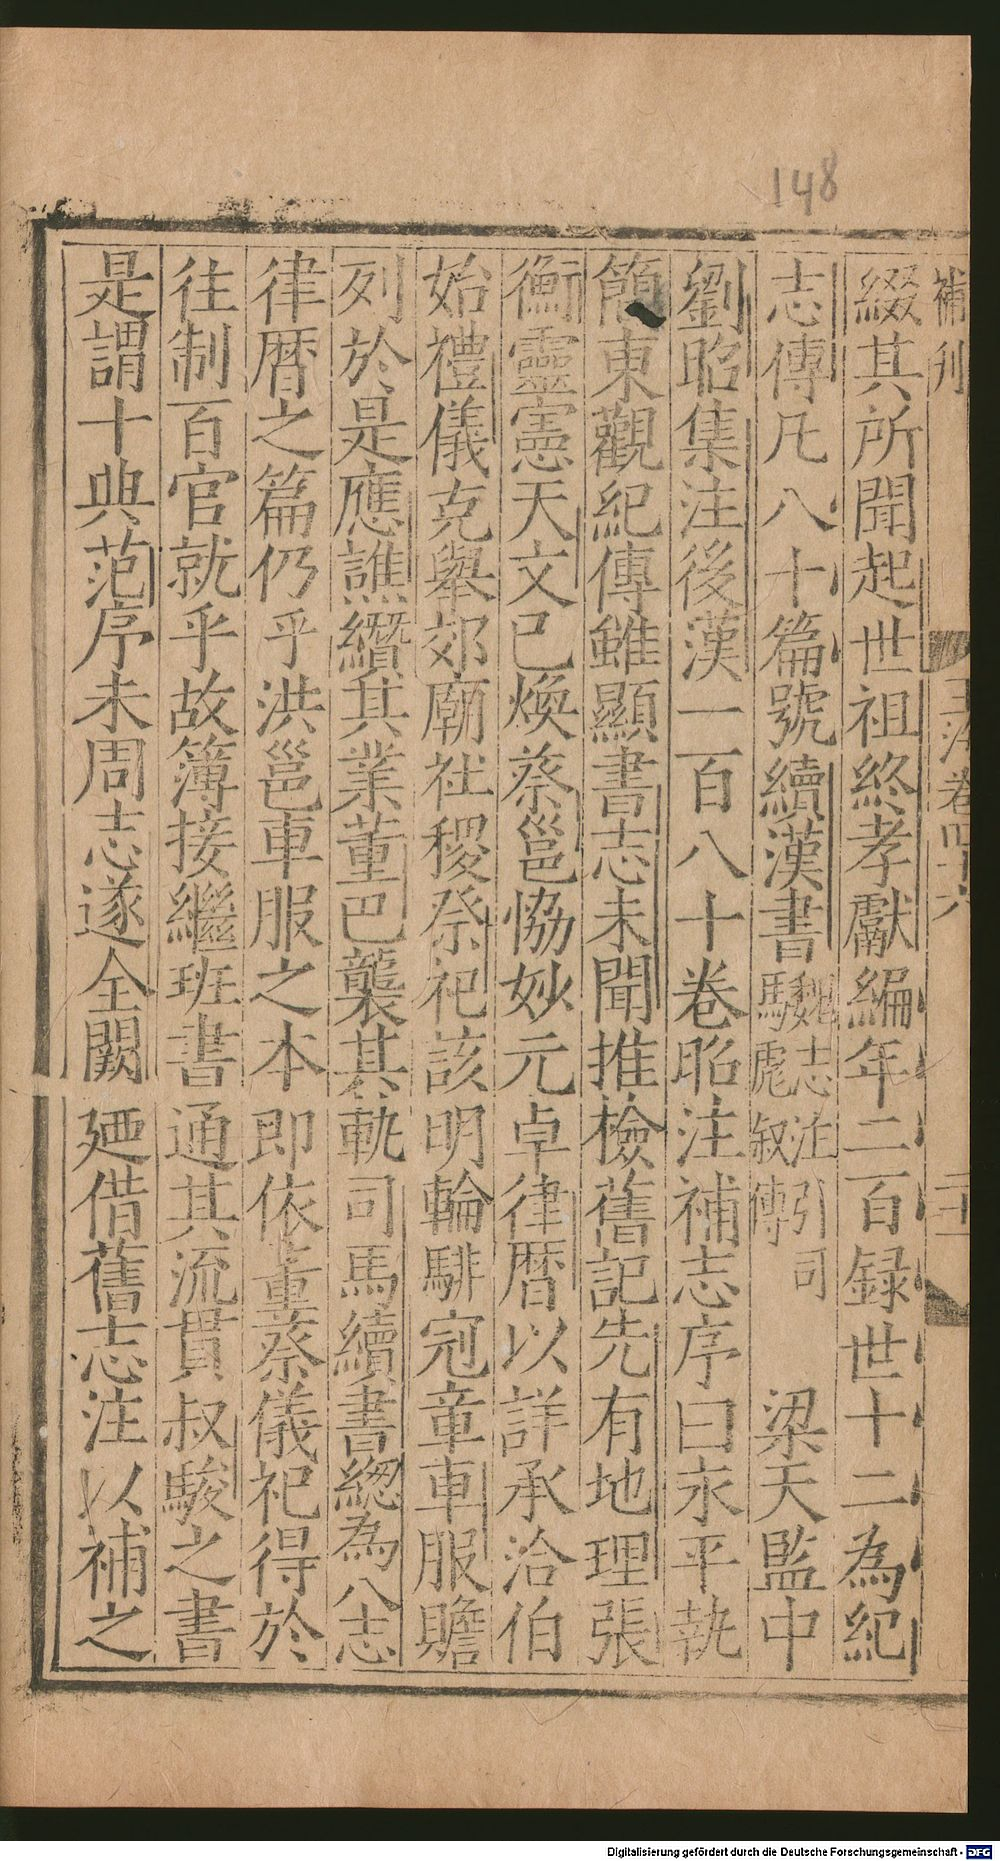 148
補刊
玉海卷四十六
二十一
綴其所聞起世祖終孝獻編年二百録世十二為紀
志傳凡八十篇號續漢書魏志注引司馬彪叙傳 梁天監中
劉昭集注後漢一百八十卷昭注補志序曰永平執
簡東觀紀傳雖顯書志未聞推檢舊記先有地理張
衡靈憲天文已煥蔡邕恊妙元卓律曆以詳承洽伯
始禮儀克舉郊廟社稷祭祀該明輪騑冠章車服贍
列於是應譙纘其業董巴襲其軌司馬續書緫為八志
律曆之篇仍乎洪邕車服之本即依董蔡儀祀得於
往制百官就乎故簿接繼班書通其流貫叔駿之書
是謂十典范序未周志遂全闕廼借舊志注以補之
Digitalisierung gefördert durch die Deutsche Forschungsgemeinschaft - DFG